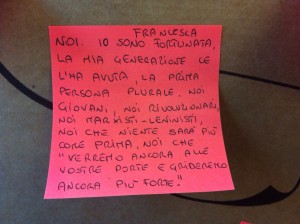 FRANCESCA
NOI. IO SONO FORTUNATA,
LA MIA GENERAZIONE CE
L'HA AVUTA, LA PRIMA
PERSONA PLURALE, NOI
GIOVANI, NOI RIVOLUZIONARI,
NOI MARXISTI-LENINISTI,
NOI CHE NIENTE SARÀ PIÙ
COME PRIMA, NOI CHE
"VERREMO ANCORA ALLE
VOSTRE PORTE E GRIDEREMO
ANCORA PIÙ FORTE."